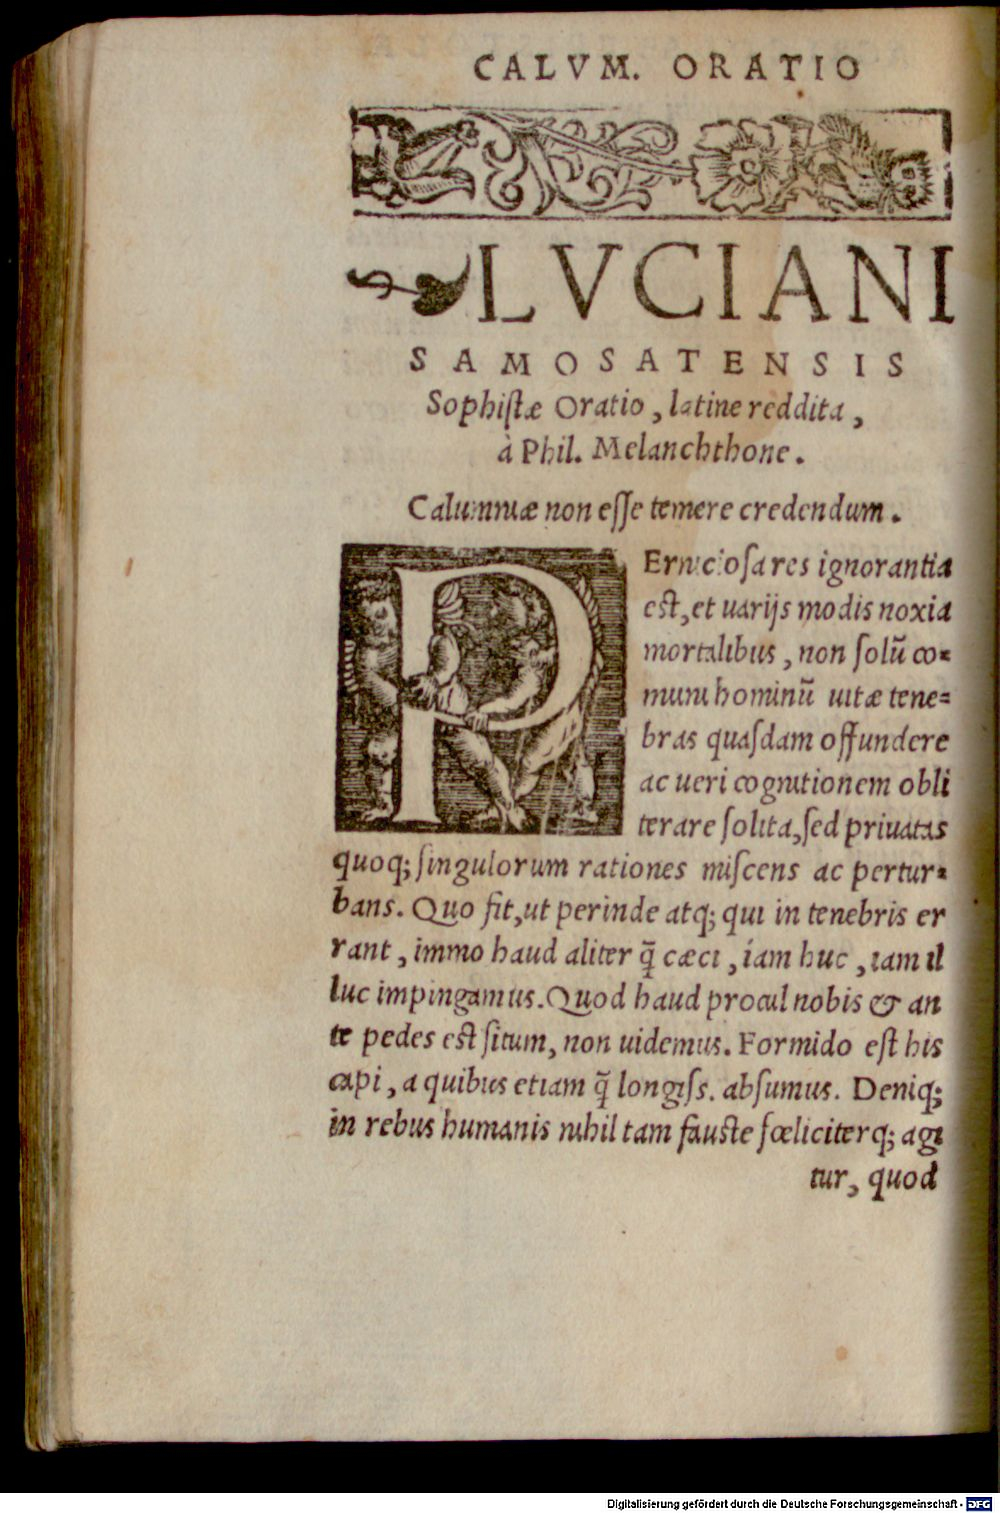 CALVM. ORATIO
LVCIANI
SAMOSATENSIS
Sophistæ Oratio, latine reddita,
à Phil. Melanchthone.
Calumniæ non esse temere credendum.
PErniciosa res ignorantia
est, et uarijs modis noxia
mortalibus, non solũ co-
muni hominũ uitæ tene-
bras quasdam offundere
ac ueri cognitionem obli
terare solita, sed priuatas
quoq; singulorum rationes miscens ac pertur-
bans. Quo fit, ut perinde atq; qui in tenebris er
rant, immo haud aliter q̃ cæci, iam huc, iam il
luc impingamus. Quod haud procul nobis & an
te pedes est situm, non uidemus. Formido est his
capi, a quibus etiam q̃ longiss. absumus. Deniq;
in rebus humanis nihil tam fauste fœliciterq; agi
tur, quod
Digitalisierung gefördert durch die Deutsche Forschungsgemeinschaft - DFG